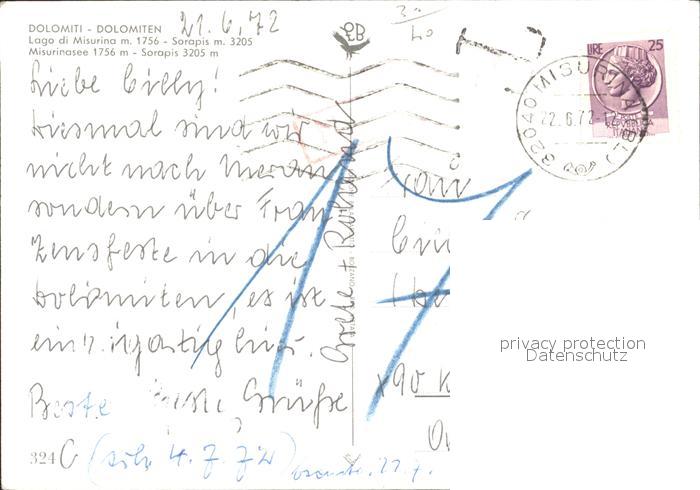 DOLOMITI - DOLOMITEN
Lago di Misurina m. 1756 - Sorapis m. 3205
Misurinasee 1756 m - Sorapis 3205 m
21.6.72
Liebe Cilly!
Diesmal sind wir
nicht nach Meran
sondern über Fran
zensfeste in die
Dolomiten, es ist
einzigartig hier.
Beste Grüße
Grete + Roland
324 C
4.7.72
T
40
LIRE 25
32040 MISURINA (BL)
22.6.72-12
Frau
90 K
privacy protection
Datenschutz